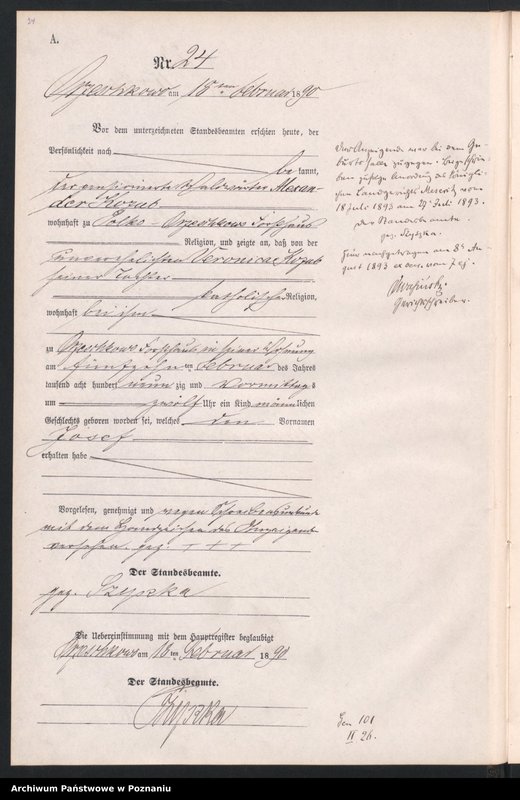 24
A.
Nr. 24
am 18ten Februar 1890
Vor dem unterzeichneten Standesbeamten erschien heute, der
Persönlichkeit nach
be kannt,
der pensionierte Waldwärter Alexan-
der Kozub
wohnhaft zu Forsthaus
Religion, und zeigte an, daß von der
unverehelichten Veronica Kozub
seiner Tochter
katholischer Religion,
wohnhaft bei ihm
zu Forsthaus in seiner Wohnung
am fünfzehnten Februar des Jahres
tausend acht hundert neun zig und Vormittags
um zwölf Uhr ein Kind männlichen
Geschlechts geboren worden sei, welches den Vornamen
Josef
erhalten habe
Vorgelesen, genehmigt und wegen
mit dem Handzeichen des
versehen. gez: + + +
Der Standesbeamte.
gez. Szypska
Die Uebereinstimmung mit dem Hauptregister beglaubigt
am 18ten Februar 1890
Der Standesbeamte.
Der Anzeigende war bei dem Ge-
burtsfalle zugegen.
zufolge Anordnung des Königli-
chen Landgerichts Meseritz vom
18 Juli 1893 am 27 Juli 1893.
Der Standesbeamte.
gez.
1893
Gerichtsschreiber.
101
II 26.
Archiwum Państwowe w Poznaniu